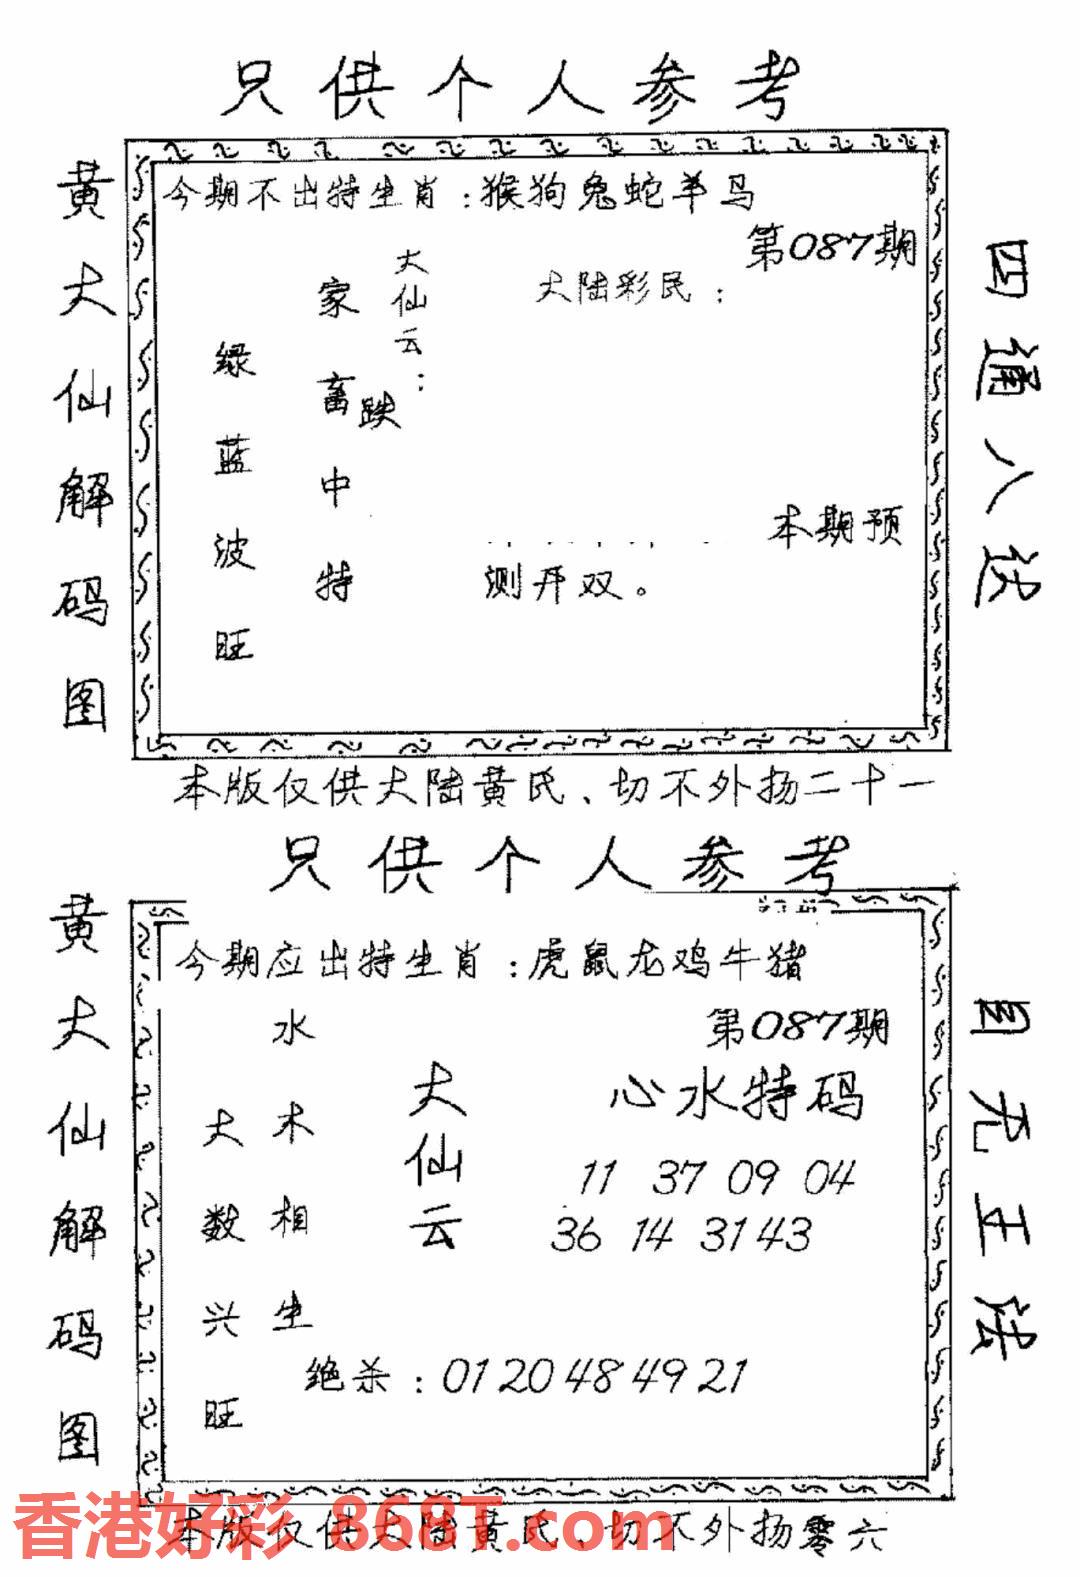 只供个人参考
黄大仙解码图
今期不出特生肖：猴狗兔蛇羊马
第087期
大陆彩民：
大仙云：
家畜中特
跌
绿蓝波旺
本期预
测开双。
四通八达
本版仅供大陆黄氏、切不外扬二十一
只供个人参考
黄大仙解码图
今期应出特生肖：虎鼠龙鸡牛猪
第087期
心水特码
大仙云
水木相生
大数兴旺
11 37 09 04
36 14 31 43
绝杀：01 20 48 49 21
自无王法
香港好彩 868T.com
本版仅供大陆黄氏、切不外扬零六